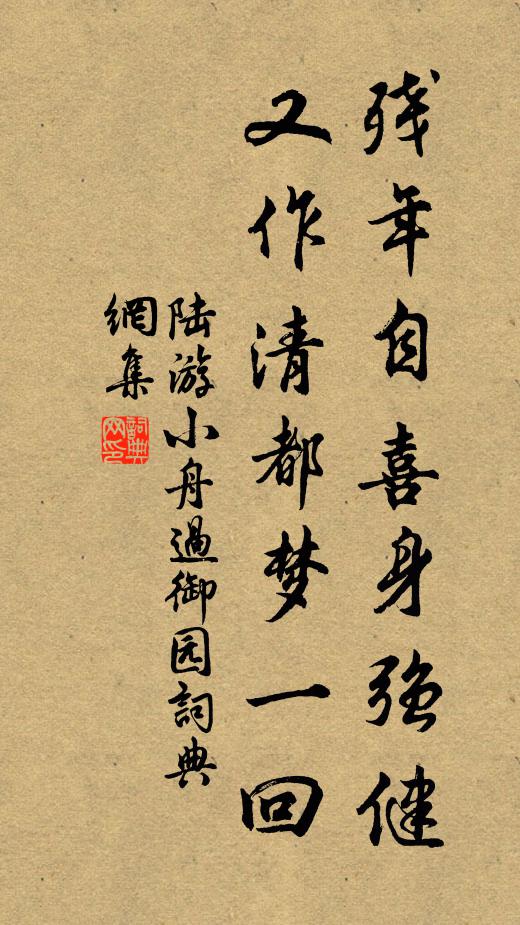 残年自喜身强健
又作清都梦一回
陆游小舟過御园詞典
網集
詞典
网印